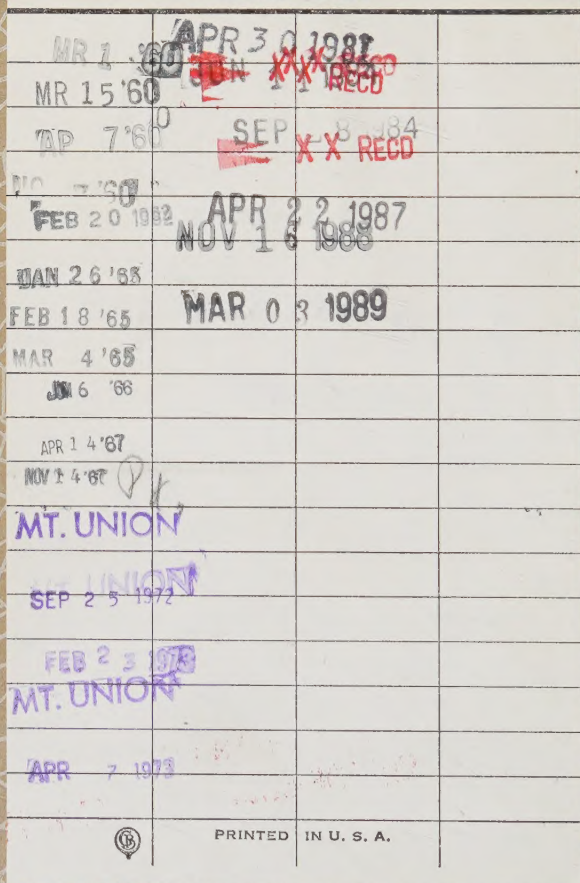 MR 1 '60
MR 15 '60
AP 7 '60
'60
FEB 20 1962
JAN 26 '65
FEB 18 '65
MAR 4 '65
6 '66
APR 14 '67
NOV 14 '67
MT. UNION
MT. UNION
SEP 25 1972
FEB 23 1973
MT. UNION
APR 7 1973
APR 30 1981
XXXX RECD
RECD
SEP 28 1984
X X RECD
APR 22 1987
NOV 16 1988
MAR 03 1989
PRINTED IN U. S. A.